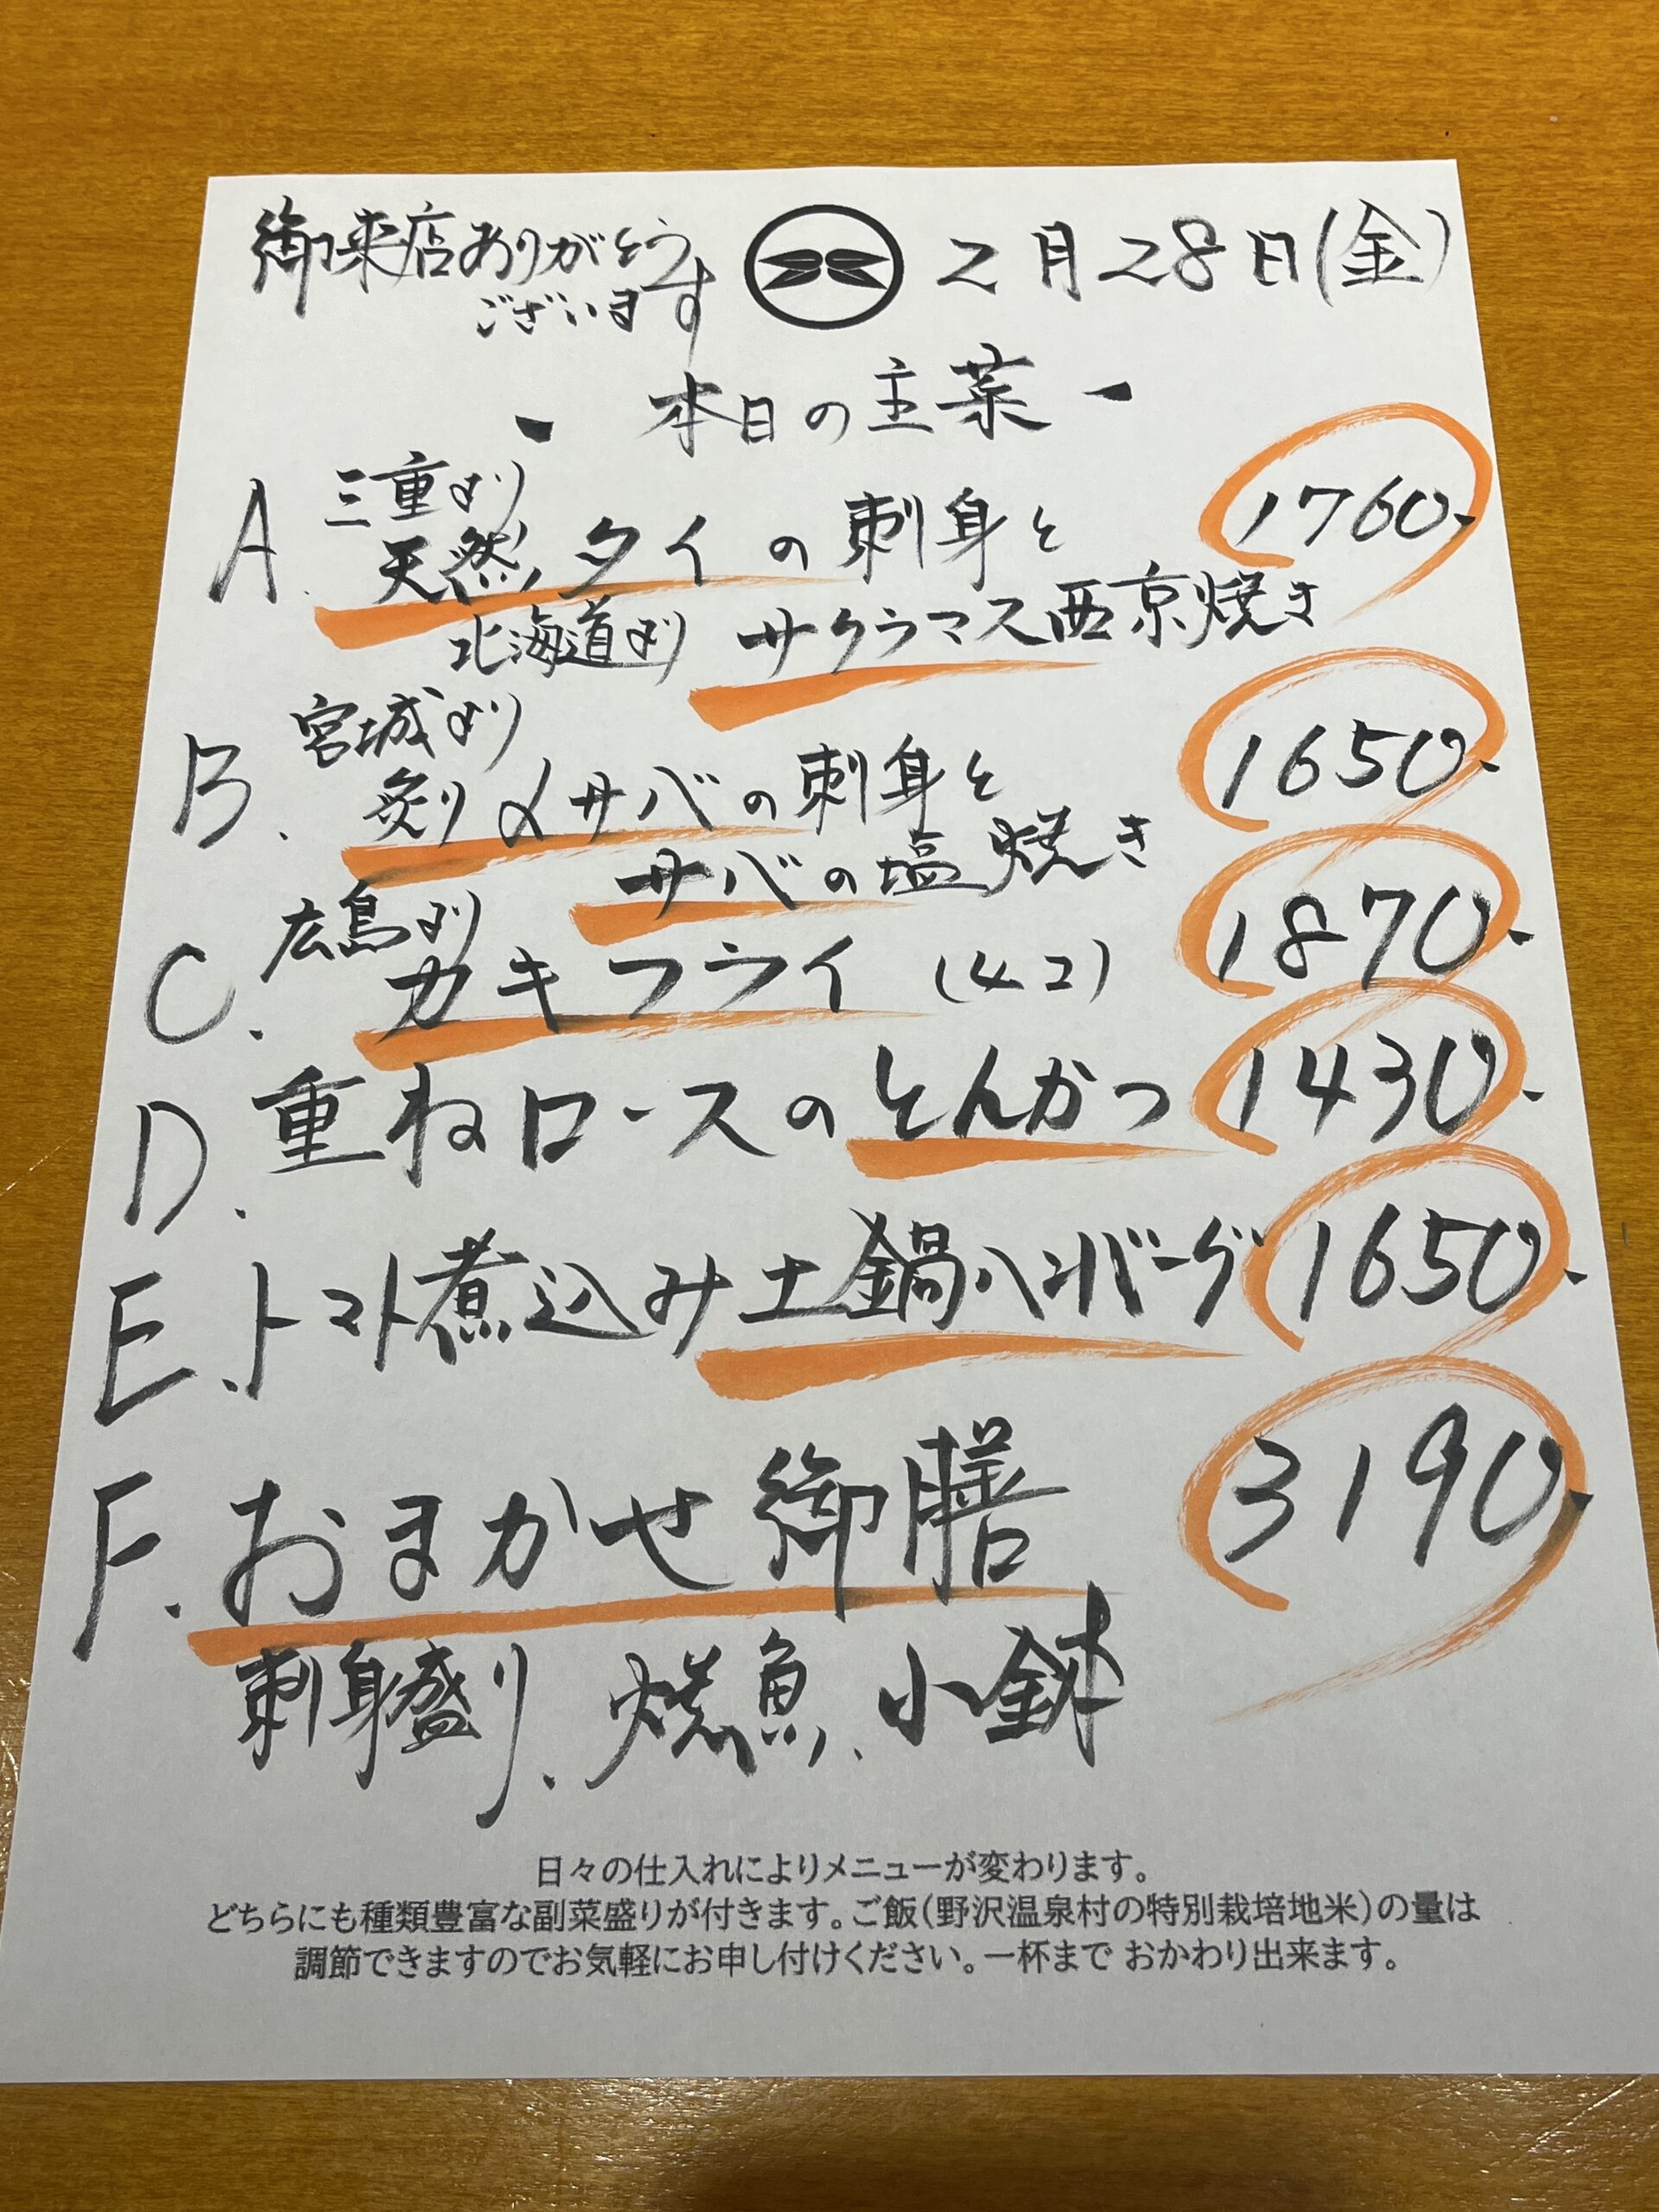 御来店ありがとう
ございます
2月28日(金)
- 本日の主菜 -
A. 三重より
天然タイの刺身と
1760、
北海道より サクラマス西京焼き
B. 宮城より
炙り〆サバの刺身と
1650、
サバの塩焼き
C. 広島より
カキフライ (4コ)
1870、
D. 重ねロースのとんかつ 1430、
E. トマト煮込み土鍋ハンバーグ 1650、
F. おまかせ御膳 3190、
刺身盛り、焼魚、小鉢
日々の仕入れによりメニューが変わります。
どちらにも種類豊富な副菜盛りが付きます。ご飯(野沢温泉村の特別栽培地米)の量は
調節できますのでお気軽にお申し付けください。一杯まで おかわり出来ます。